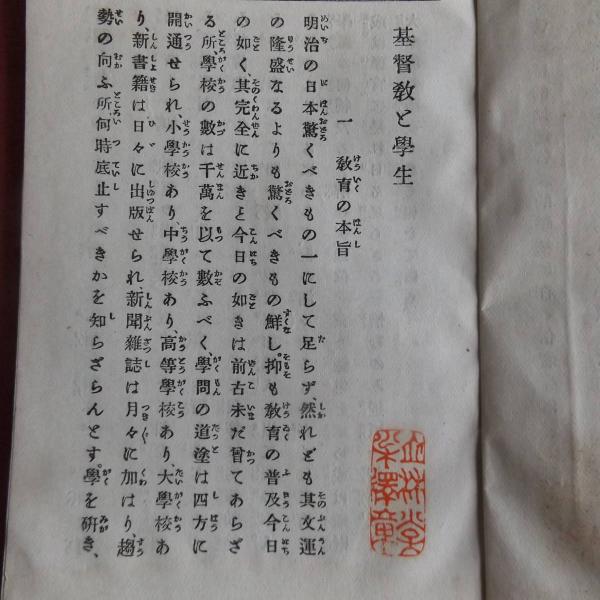 基督敎と學生
一 敎育の本旨
明治の日本驚くべきもの一にして足らず、然れども其文運
の隆盛なるよりも驚くべきもの鮮し。抑も敎育の普及今日
の如く、其完全に近きと今日の如きは前古未だ曾てあらざ
る所、學校の數は千萬を以て數ふべく、學問の道塗は四方に
開通せられ、小學校あり、中學校あり、高等學校あり、大學校あ
り、新書籍は日々に出版せられ、新聞雜誌は月々に加はり、趨
勢の向ふ所、何時底止すべきかを知らざらんとす。學を硏き、